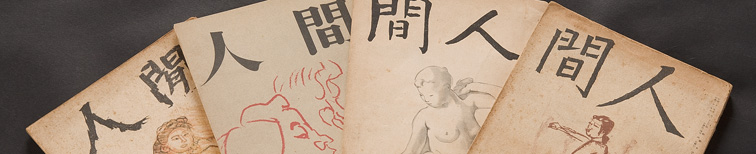 人間
人間
人間
人間